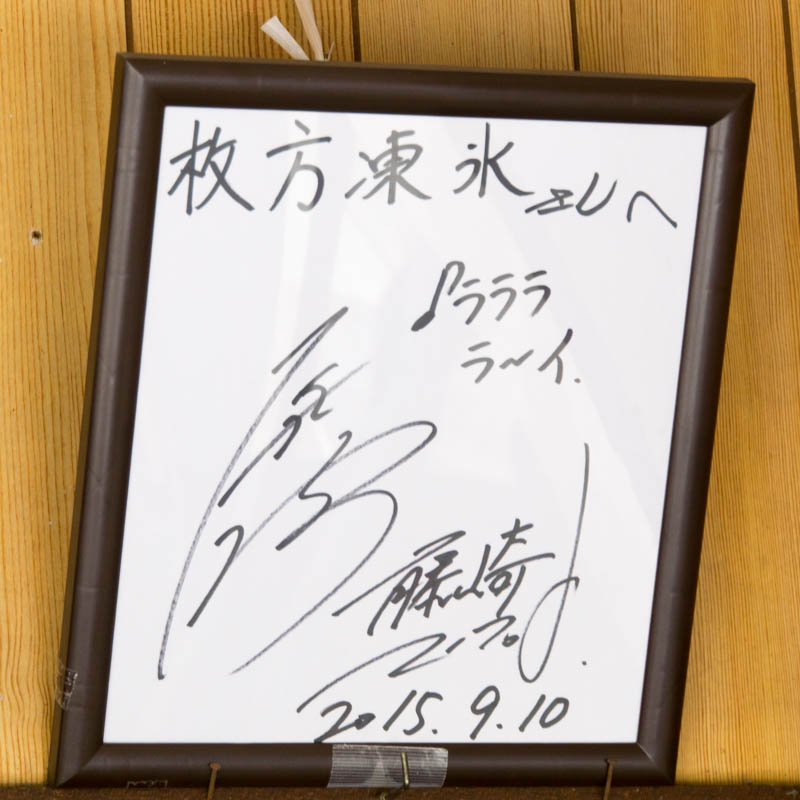 枚方凍氷さんへ
♪ラララ
ラ〜イ.
藤崎
マーケット
2015.9.10